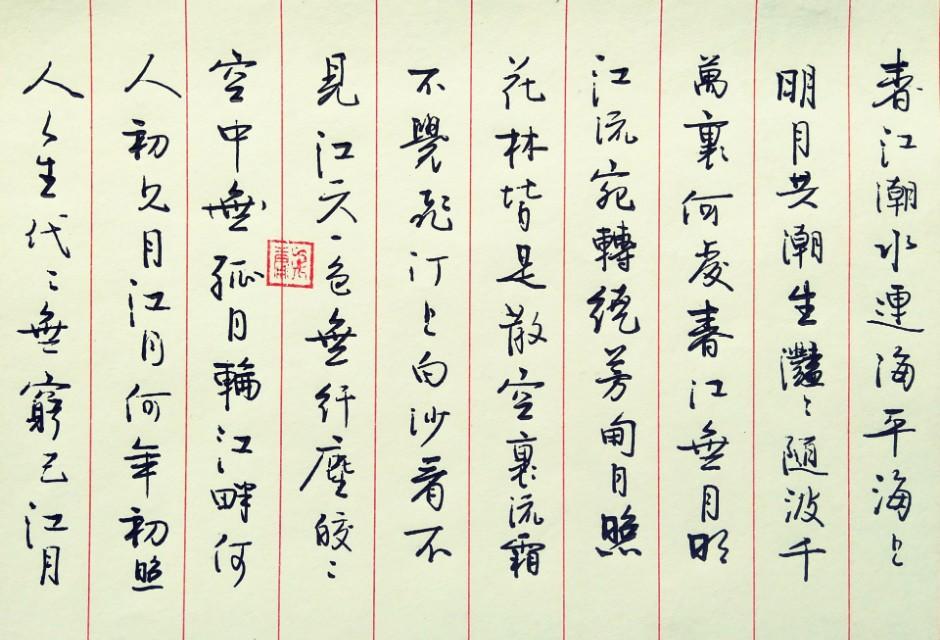 春江潮水連海平海上
明月共潮生灩〻随波千
萬裏何處春江無月明
江流宛轉繞芳甸月照
花林皆是散空裏流霜
不覺飛汀上白沙看不
見江天一色無纤塵皎〻
空中無孤月輪江畔何
人初見月江月何年初照
人〻生代〻無窮已江月